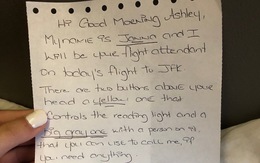 Hi Good Morning Ashley,
My name is Janna and I
will be your flight attendant
on today's flight to JFK
There are two buttons above your
head a yellow one that
controls the reading light and a
big gray one with a person on it
that you can use to call me, if
you need anything.